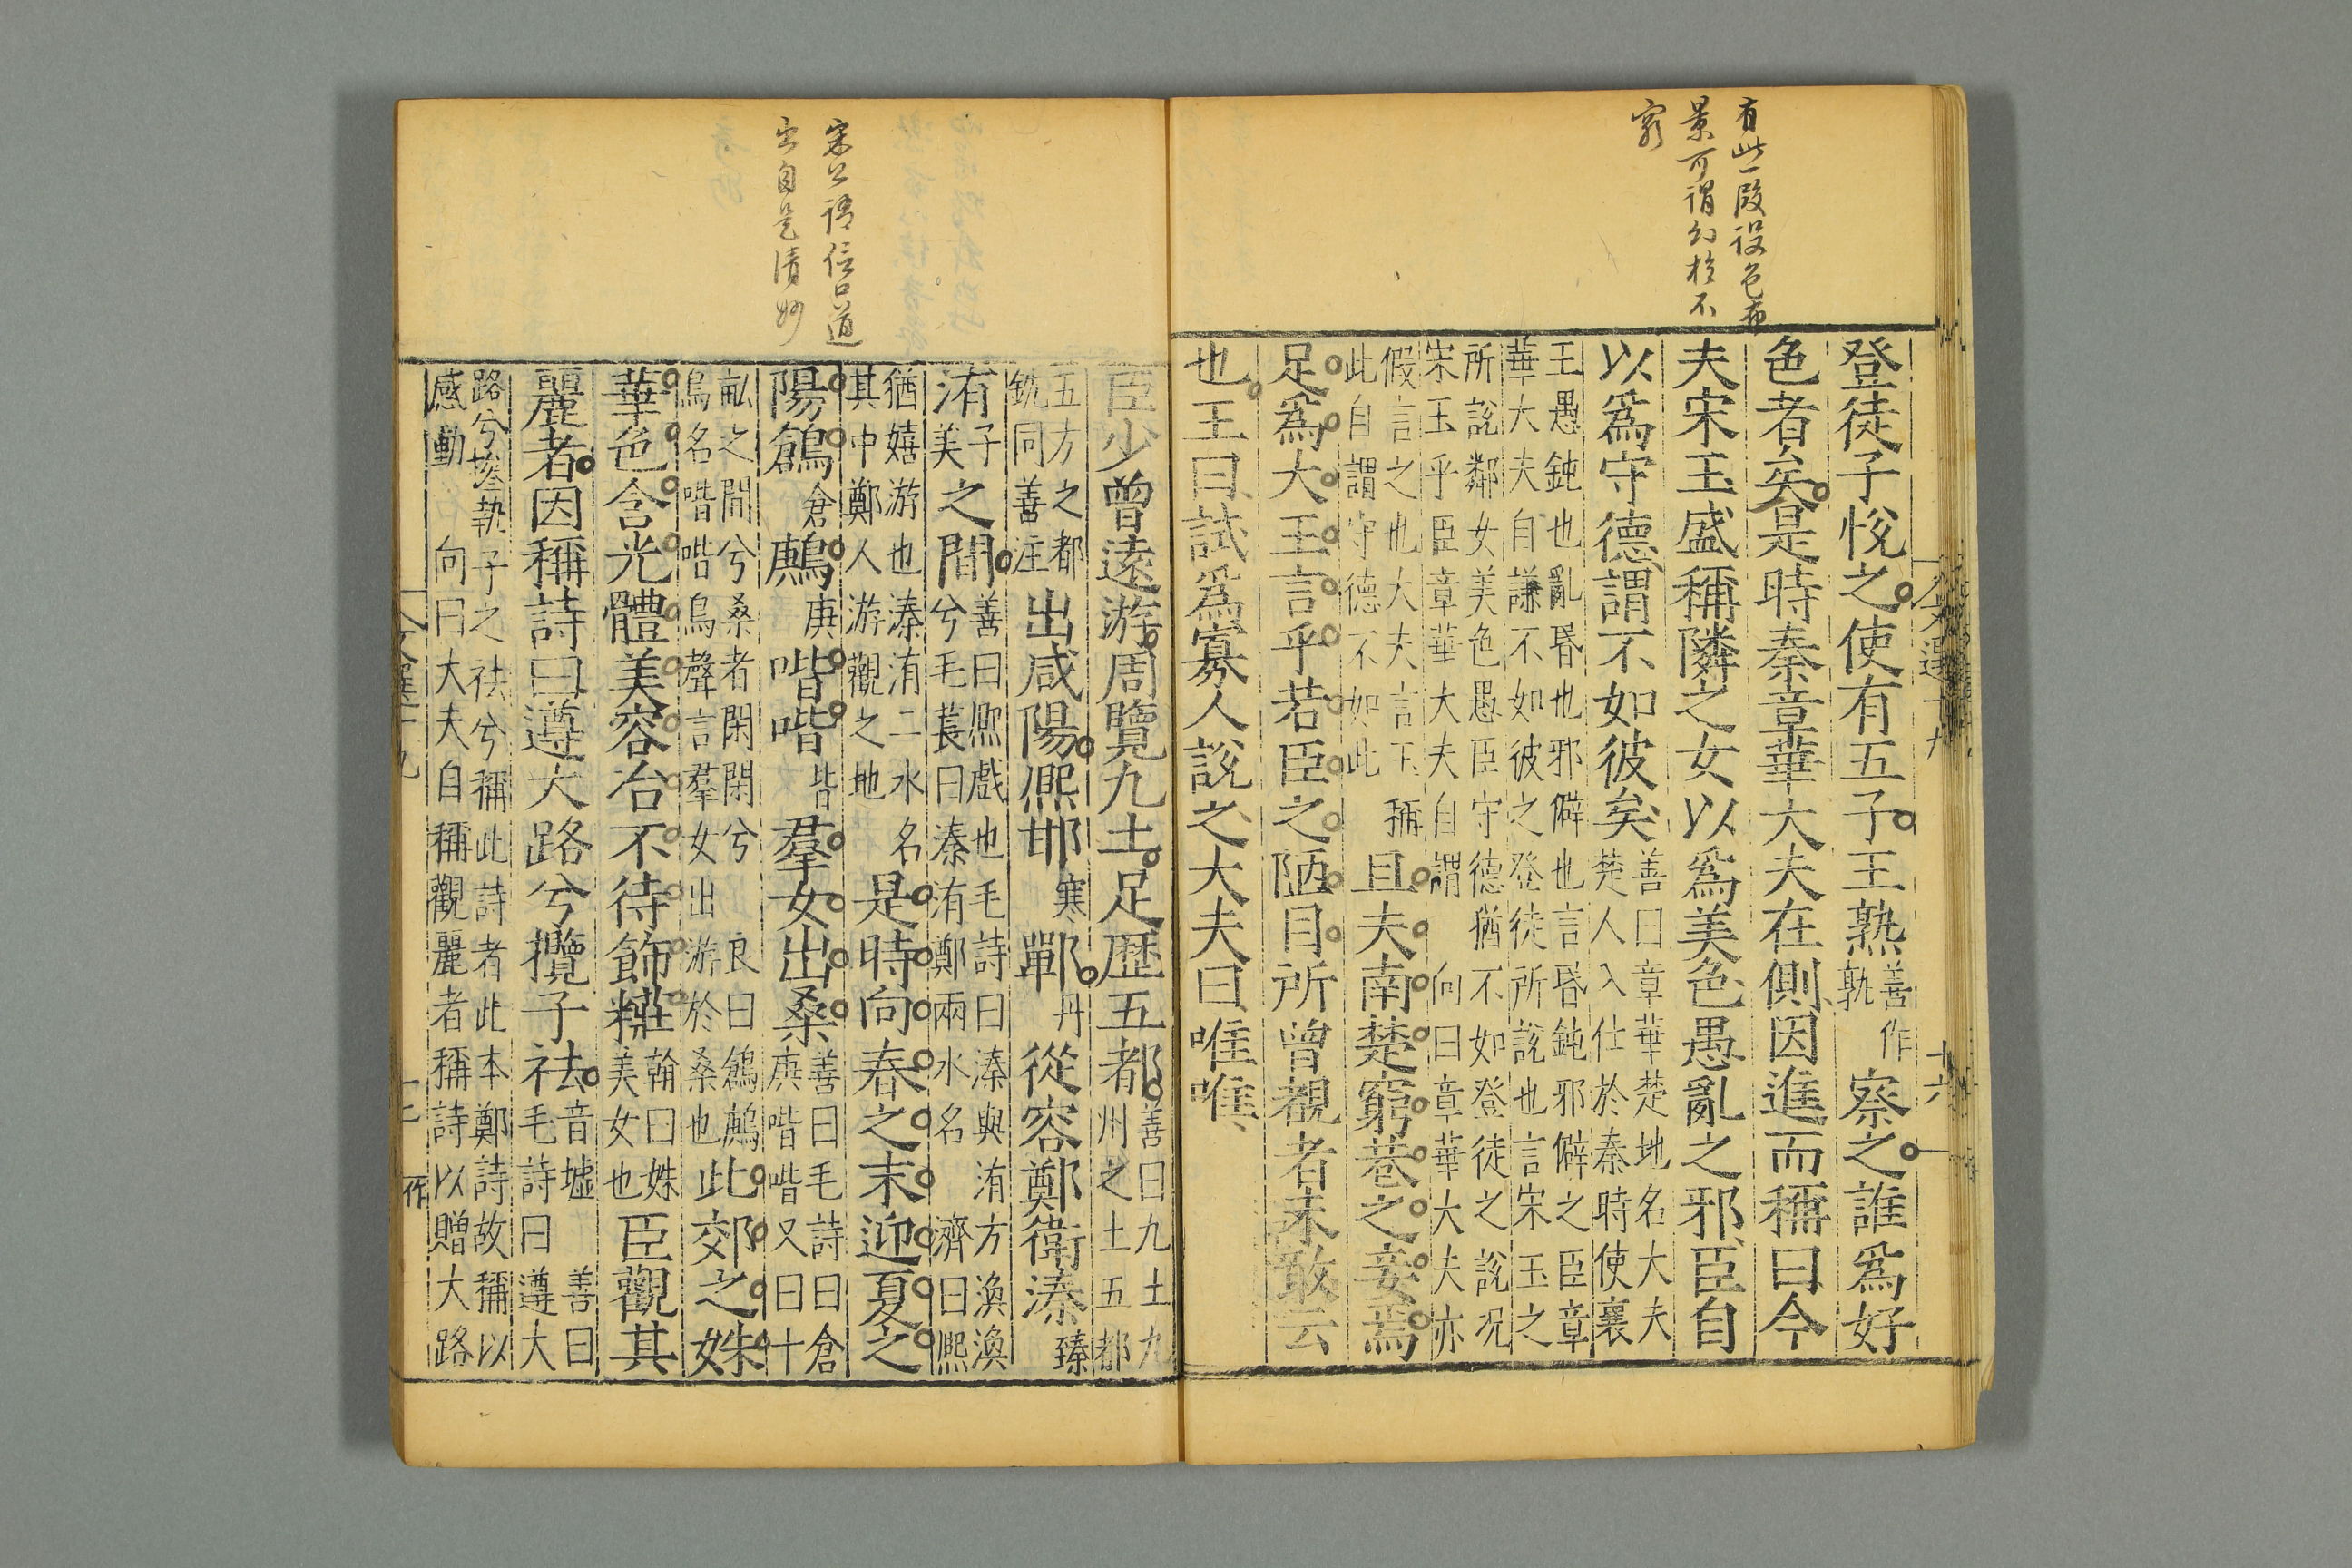 有此一段設色布
景可謂幻於不
窮
登徒子悅之使有五子王熟善作孰察之誰爲好
色者矣是時秦章華大夫在側因進而稱曰今
夫宋玉盛稱隣之女以爲美色愚亂之邪臣自
以爲守德謂不如彼矣善曰章華楚地名大夫楚人入仕於秦時使襄
王愚鈍也亂昏也邪僻也言昏鈍邪僻之臣章
華大夫自謙不如彼之登徒所說也言宋玉之
所說鄰女美色愚臣守德猶不如登徒之說况
宋玉乎臣章華大夫自謂向曰章華大夫亦
假言之也大夫言玉稱
此自謂守德不如此
且夫南楚窮巷之妾焉
足爲大王言乎若臣之陋目所曾覩者未敢云
也王曰試爲寡人說之大夫曰唯唯
文選十九
十六
宋公語信口道
出自是清妙
臣少曾遠游周覽九土足歷五都善曰九土九州之土五都
五方之都
銑同善注
出咸陽熈邯寒鄲丹從容鄭衛溱臻
洧子美之間善曰熈戲也毛詩曰溱與洧方渙渙兮毛萇曰溱洧鄭兩水名濟曰熈
猶嬉游也溱洧二水名
其中鄭人游觀之地
是時向春之末迎夏之
陽鶬倉鶊庚喈喈皆羣女出桑善曰毛詩曰倉庚喈喈又曰十
畝之間兮桑者閑閑兮良曰鶬鶊
鳥名喈喈鳥聲言羣女出游於桑也
此郊之姝
華色含光體美容冶不待飾糚翰曰姝美女也臣觀其
麗者因稱詩曰遵大路兮攬子袪音墟善曰毛詩曰遵大
路兮摻執子之袪兮稱此詩者此本鄭詩故稱以
感動向曰大夫自稱觀麗者稱詩以贈大路
文選十九
十七
作